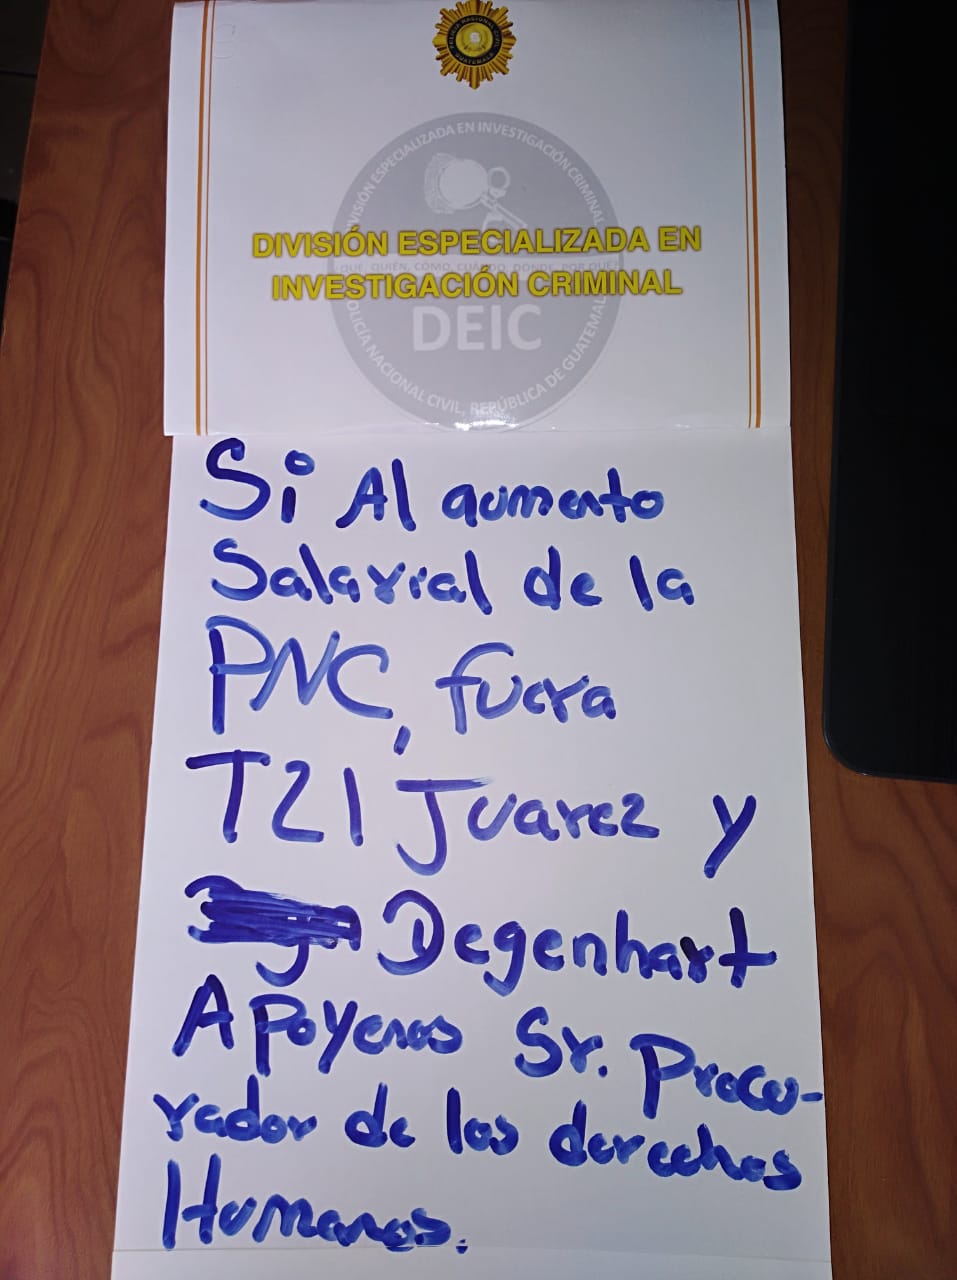 POLICIA NACIONAL CIVIL
GUATEMALA
DIVISIÓN ESPECIALIZADA EN INVESTIGACIÓN CRIMINAL
DIVISIÓN ESPECIALIZADA EN
QUE, QUIEN, COMO, CUANDO, DONDE, POR QUE?
INVESTIGACIÓN CRIMINAL
DEIC
POLICÍA NACIONAL CIVIL, REPÚBLICA DE GUATEMALA
Si Al aumento
Salarial de la
PNC, fuera
T21 Juarez y
Degenhart
Apoyenos Sr. Procu-
rador de los derechos
Humanos.